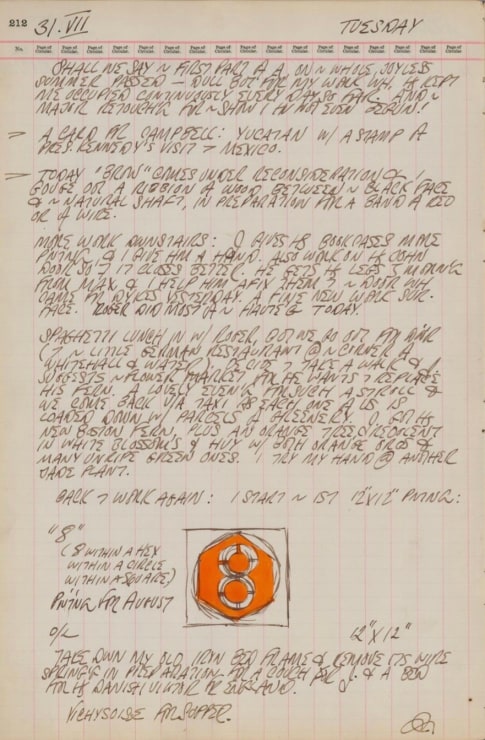 212 31.VII TUESDAY
No. Page of Circular. Page of Circular. Page of Circular. Page of Circular. Page of Circular. Page of Circular. Page of Circular. Page of Circular. Page of Circular. Page of Circular. Page of Circular. Page of Circular. Page of Circular. Page of Circular. Page of Circular. Page of Circular.
SHALL WE SAY ~ FIRST PART OF A ~ WHOLE, JOYLESS
SUMMER PASSED — DULL BUT FOR MY WORK WH. HAS KEPT
ME OCCUPIED CONTINUOUSLY EVERY DAY SO FAR AND ~
MAJOR FOR ~ SHOW I NOT EVEN BEGUN!
> A CARD FR CAMPBELL: YUCATAN W/ A STAMP OF
PRES. KENNEDY'S VISIT > MEXICO.
> TODAY "BROW" COMES UNDER RECONSIDERATION & I
GOUGE OUT A RIBBON OF WOOD BETWEEN ~ BLACK FACE
& ~ NATURAL SHAFT, IN PREPARATION FOR A BAND OF RED
OR OF WIRE.
MORE WORK DOWNSTAIRS: J GIVES HS BOOKCASES MORE
PNTNG & I GIVE HIM A HAND. ALSO WORK ON HS JOHN
DOOR SO IT CLOSES BETTER. HE GETS HS LEGS MORNING
FROM MAX & I HELP HIM AFIX THEM > ~ DOOR WH
CAME FR DYKES YESTERDAY. A FINE NEW WORK SUR-
FACE. ROBER DID MOST OF ~ TODAY.
SPAGHETTI LUNCH IN W/ ROBER, BUT WE GO OUT FOR DINR
(> ~ LITTLE GERMAN RESTAURANT @ ~ CORNER OF
WHITEHALL & WATER) DECIDE > TAKE A WALK & J
SUGGESTS ~ FLOWER MARKET FOR HE WANTS > REPLACE
HIS FERN. A LOVELY EVEN'G FOR SUCH A STROLL &
WE COME BACK VIA TAXI AS EACH ONE OF US IS
LOADED DOWN W/ PARCELS OF GREENERY. J FOR HS
NEW BOSTON FERN, PLUS AN ORANGE TREE RESPLENDENT
IN WHITE BLOSSOMS & HUNG W/ BOTH ORANGE ORBS &
MANY UNRIPE GREEN ONES. I TRY MY HAND @ ANOTHER
JADE PLANT.
BACK > WORK AGAIN: I START ~ 1ST 12"X12" PNTNG:
"8"
(8 WITHIN A HEX
WITHIN A CIRCLE
WITHIN A SQUARE)
PNTNG FOR AUGUST
8
O/C 12"X12"
TAKE DOWN MY OLD IRON BED FRAME & REMOVE ITS WIRE
SPRINGS IN PREPARATION FOR A COUCH FOR J. & A BED
FOR HS DANISH VISITOR FR ENGLAND.
VICHYSOISE FOR SUPPER.